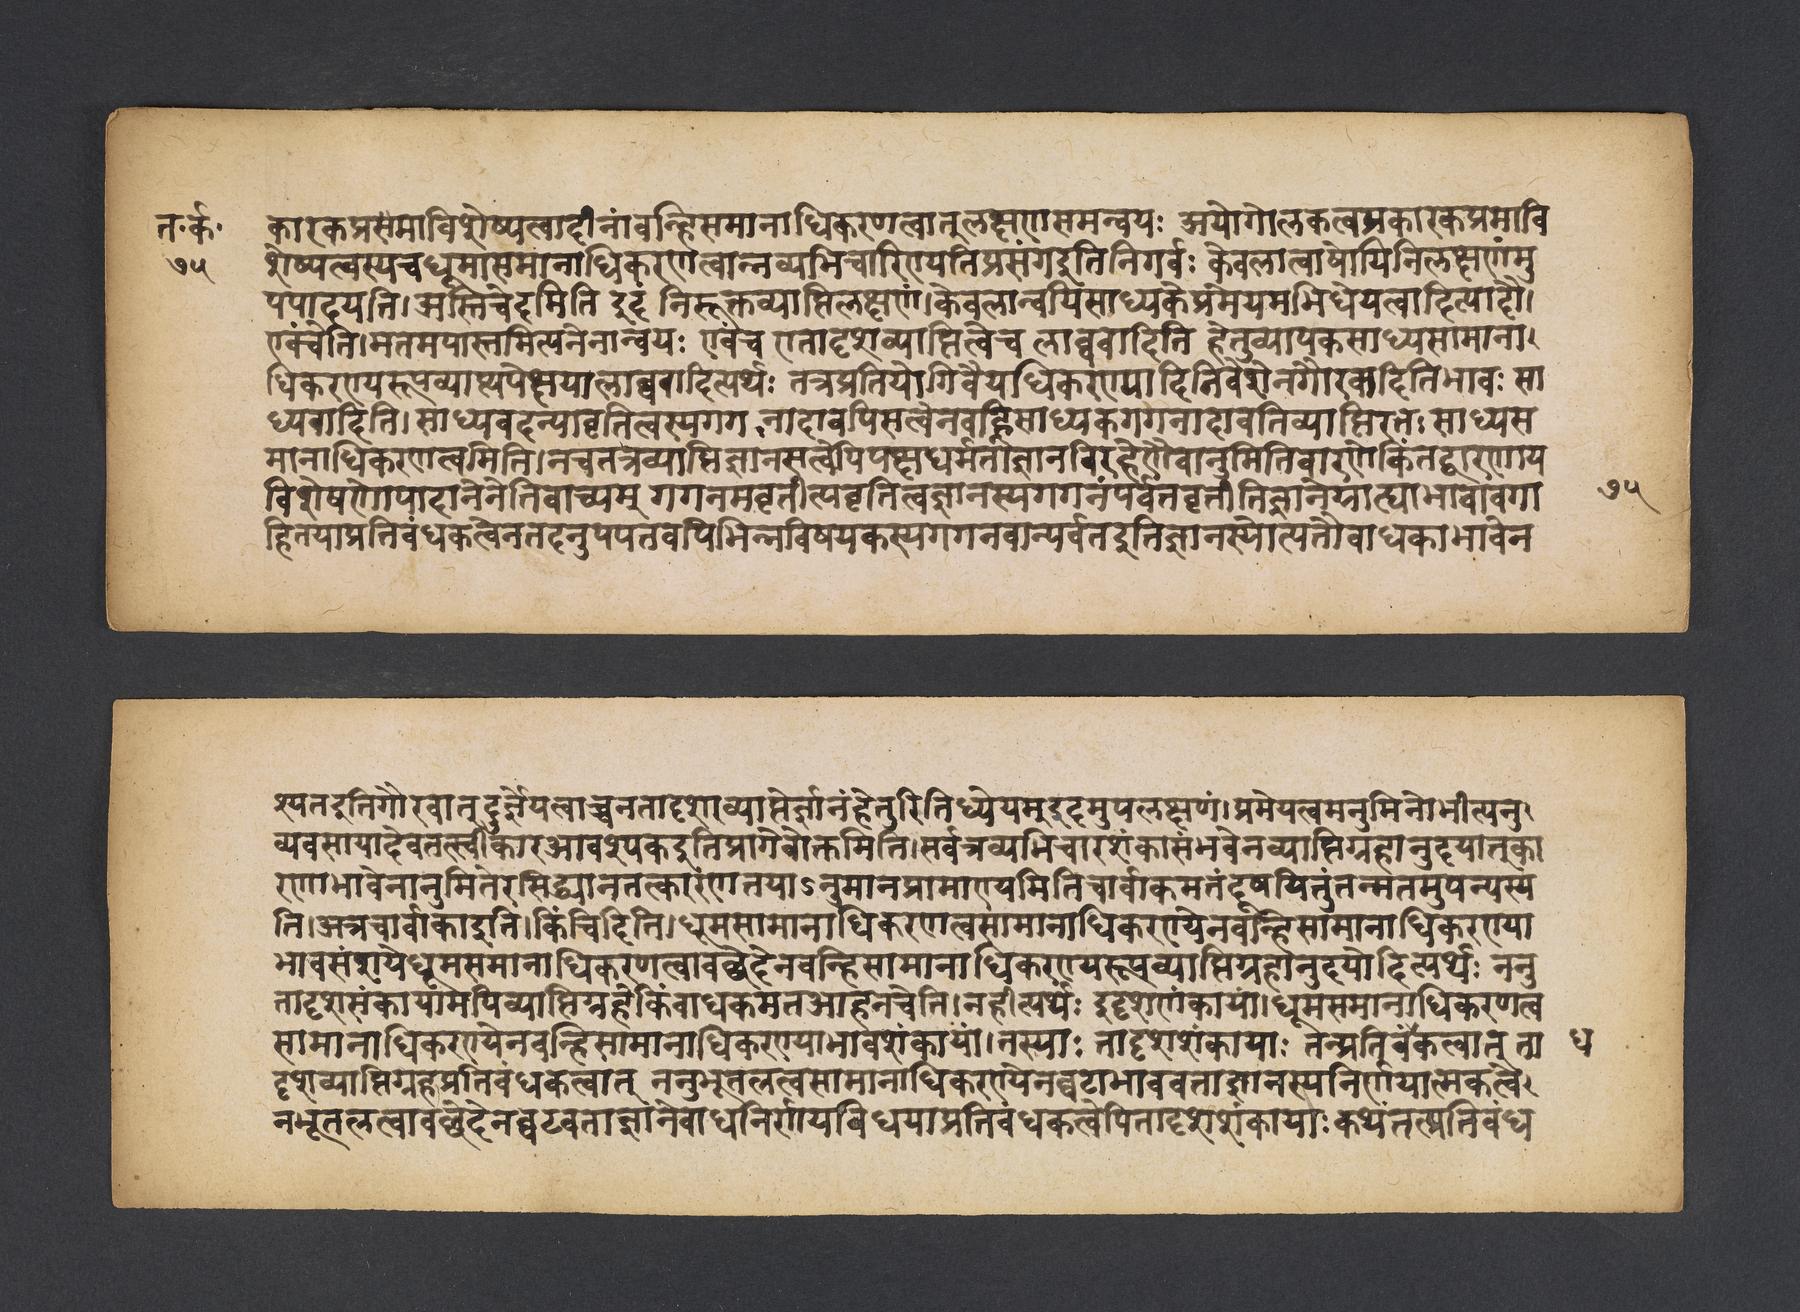 त॰र्क॰
७५
कारकप्रसमाविशेष्यत्वादीनांवन्हिसमानाधिकरणत्वातुलक्षणसमन्वयः अयोगोलकत्वप्रकारकप्रमावि
शेष्यत्वस्यचधूमासमानाधिकरणत्वान्नव्यभिचारिण्यतिप्रसंगइतिनिगर्वः केवलात्वाषायिनिलक्षणंमु
पपादयति।अस्तिचेदमिति इदं निरूक्तव्याप्तिलक्षणं।केवलान्वयिसाध्यकेप्रमेयमभिधेयत्वादित्यादौ।
एवंचेति।मतमपास्तमित्यनेनान्वयः एवंच एतादृशव्याप्तित्वेच लाघवादिति हेतुव्यापकसाध्यसामाना
धिकरण्यरूपव्याप्त्यपेक्षयालाघवादित्यर्थः तत्रप्रतियोगिवैयधिकरण्यादिनिवेशेनगौरवादितिभावः सा
ध्यवादिति।साध्यवदन्यावृत्तित्वस्यगग नादावपिसत्वेनवह्निसाध्यकगगनादावतिव्याप्तिरतः साध्यस
मानाधिकरणत्वमिति।नचतत्रव्याप्तिज्ञानसत्वेपिपक्षधर्मताज्ञानविरहेणैवानुमितिवारणेकिंतद्वारणाय
विशेषणोपादानेनेतिवाच्यमु गगनमवृत्तीत्यवृत्तित्वज्ञानस्यगगनंपर्वतवृत्तीतिज्ञानेग्राह्याभावावगा
हितयाप्रतिबंधकत्वेनतदनुपपत्तवपिभिन्नविषयकस्यगगनवान्पर्वतइतिज्ञानस्योत्पत्तौबाधकाभावेन
७५
श्यतइतिगौरवात् दुर्ज्ञेयत्वाच्चनतादृशव्याप्तेर्ज्ञानंहेतुरितिध्येयमुइदमुपलक्षणं।प्रमेयत्वमनुमिनोमीत्यनु
व्यवसायादेवतत्स्वीकारआवश्यकइतिप्रागेवोक्तमिति।सर्वत्रव्यभिचारशंकासंभवेनव्याप्तिग्रहानुदयात्का
रणाभावेनानुमितेरसिद्ध्यानतत्कारणतयाऽनुमानप्रामाण्यमितिचार्वाकमतंदूषयितुंतन्मतमुपन्यस्य
ति।अत्रचार्वाकाइति।किंचिदिति।धूमसामानाधिकरणत्वसामानाधिकरण्येनवन्हिसामानाधिकरण्या
भावसंशयेधूमसमानाधिकरणत्वावच्छेदेनवन्हिसामानाधिकरण्यरूपव्याप्तिग्रहानुदयादित्यर्थः ननु
तादृशसंकायामपिव्याप्तिग्रहेकिंबाधकमतआहनचेति।नहीत्यर्थः इदृशेणंकायां।धूमसमानाधिकरणत्व
सामानाधिकरण्येनवन्हिसामानाधिकरण्याभावशंकायां।तस्याः तादृशशंकायाः तत्प्रतिबंकत्वात् ता
ध
दृशव्याप्तिग्रहप्रतिबंधकत्वात् ननुभूतलत्वसामानाधिकरण्येनघटाभाववताज्ञानस्यनिर्णयात्मकत्वे
नभूतलत्वावच्छेदेनघटवताज्ञानेबाधनिर्णयविधयाप्रतिबंधकत्वेपितादृशशंकायाः कथंतत्प्रतिबंध